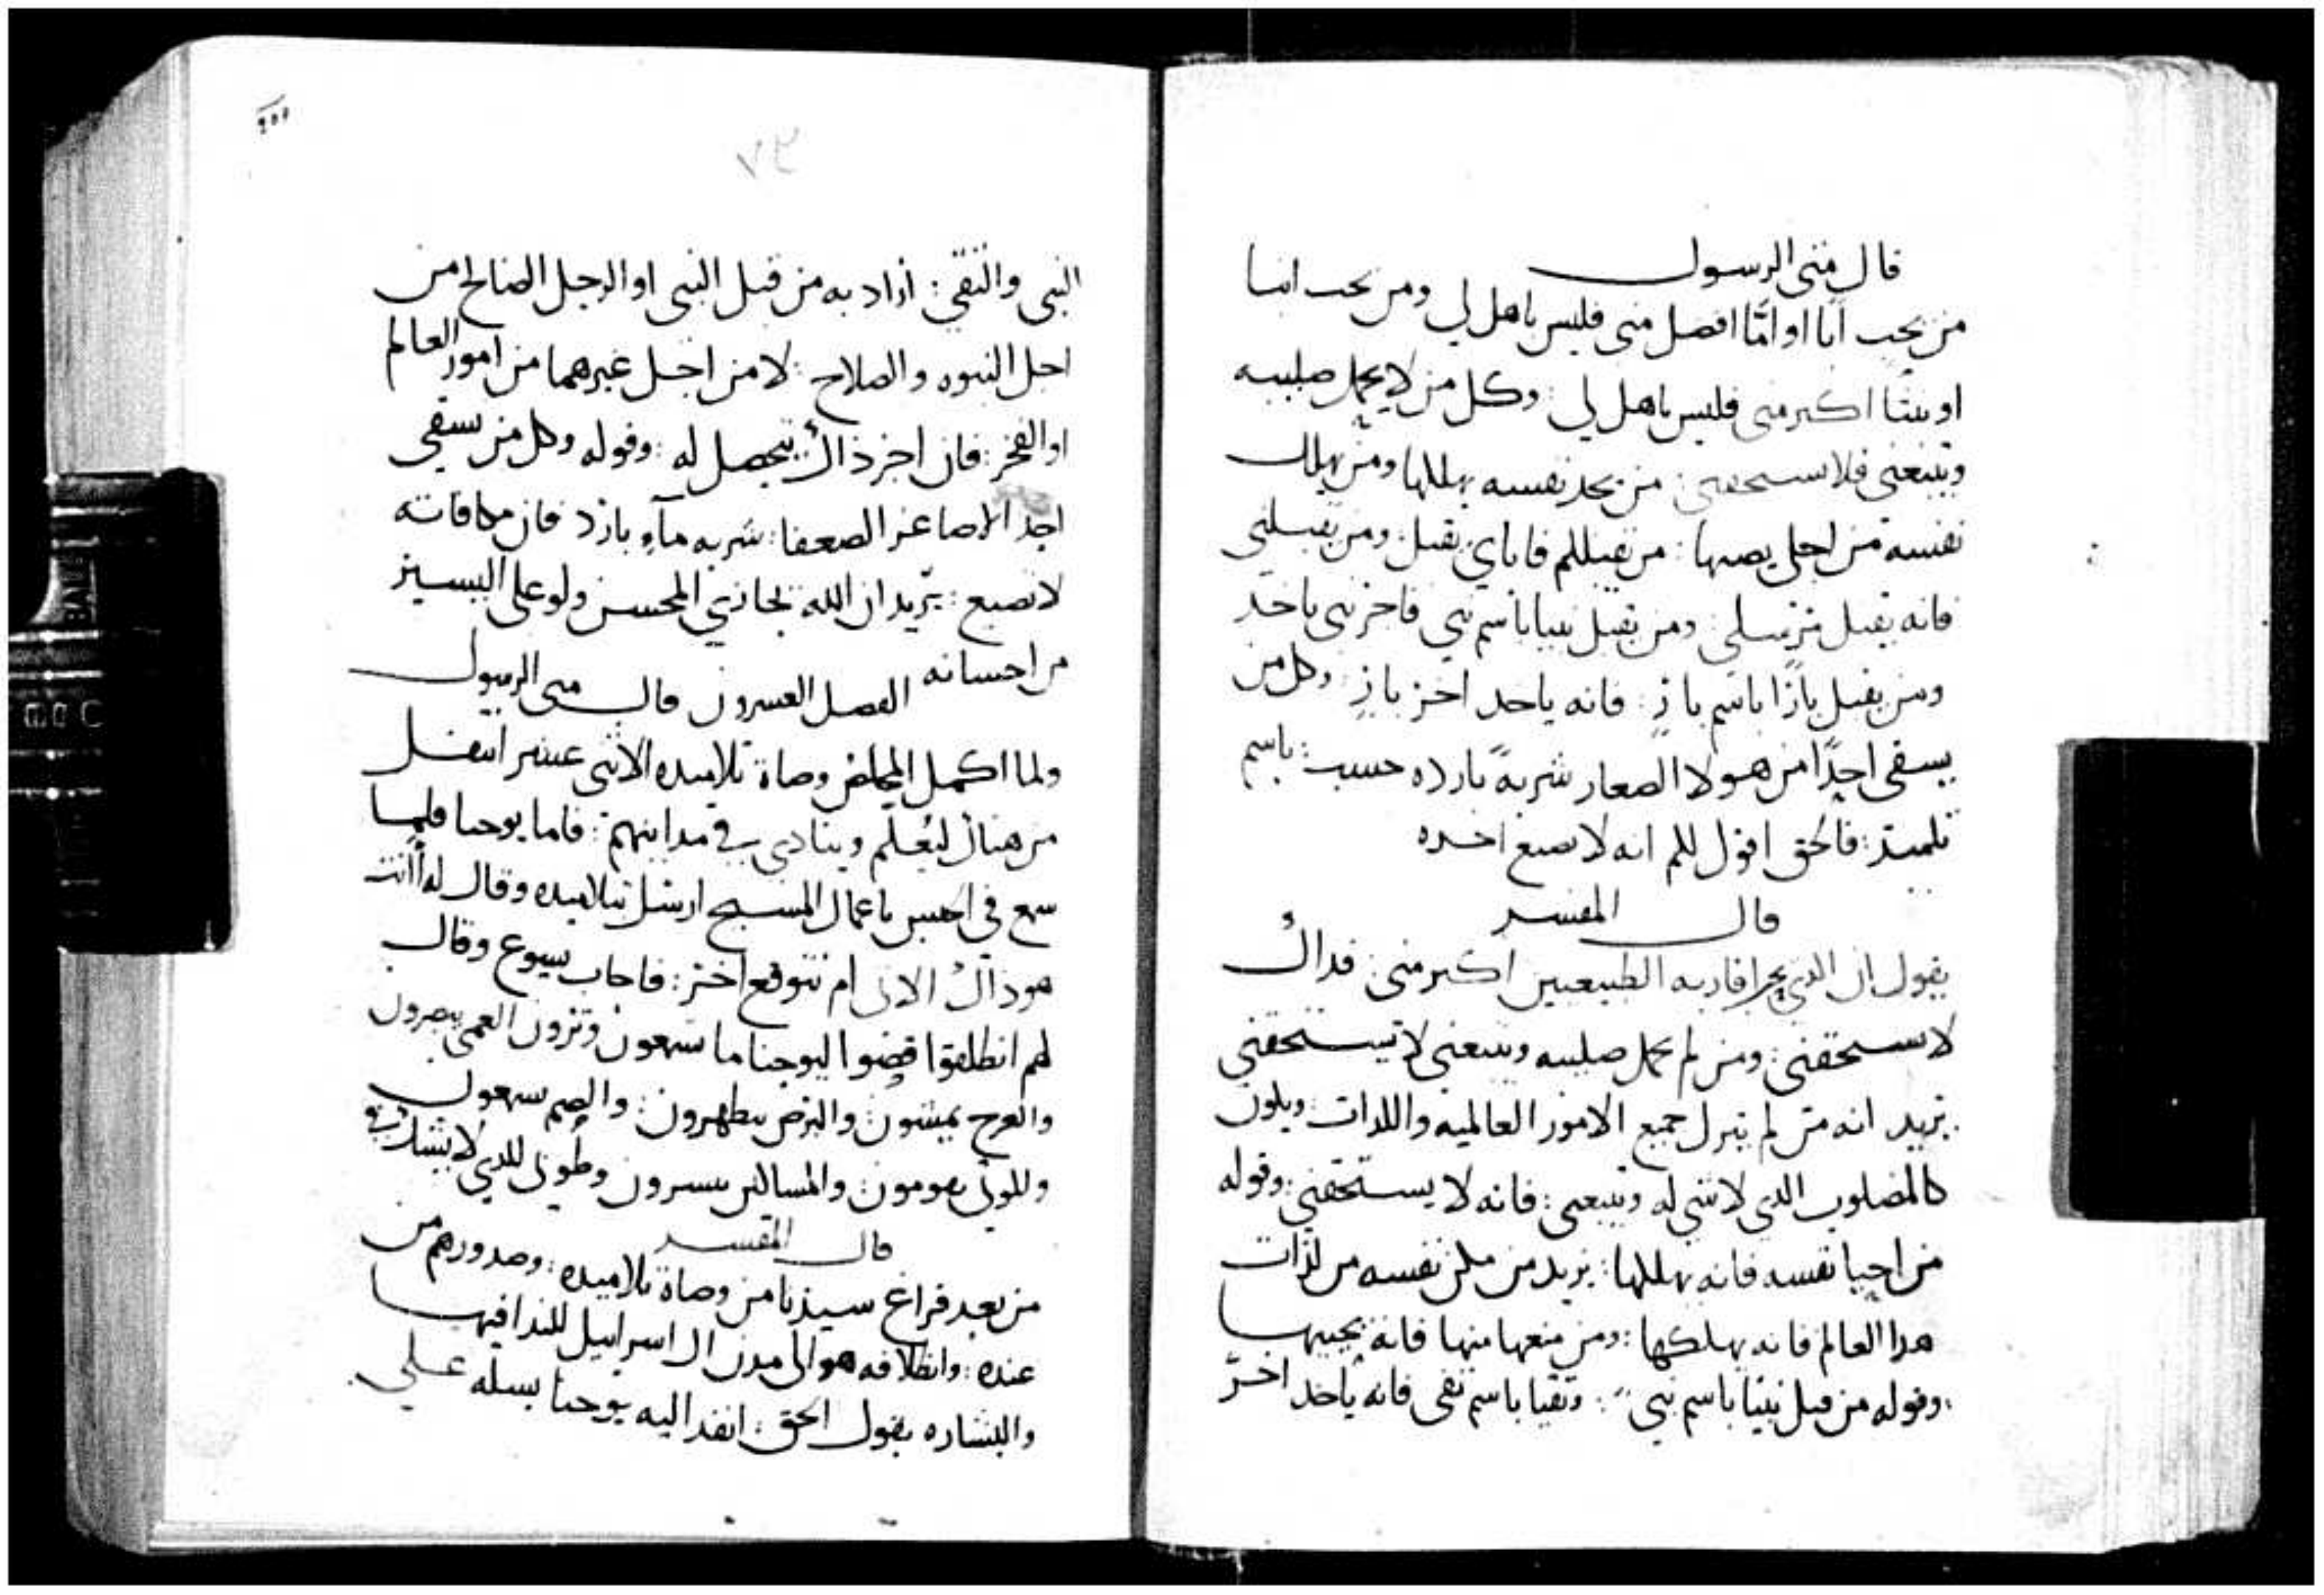 قال متى الرسول
من يحب ابا او امّا افضل منى فليس باهل لي ومن يحب ابنا
او بنتا اكبر منى فليس باهل لي: وكل من لا يحمل صليبه
ويتبعنى فلا يستحقنى: من يجد نفسه يهلكها ومن يهلك
نفسه من اجلى يصبها: من تقبلكم فاياي تقبل: ومن تقبلني
فانه يقبل مرسلي: ومن يقبل نبيا باسم نبي فاجر نبي ياخذ
ومن يقبل بارًا باسم بارٍ: فانه ياخد اجر بارٍ: وكل من
يسقى احدًا من هولا الصغار شربةً بارده حسب: باسم
تلميذ: فالحق اقول لكم انه لا يضيع اجره
قال المفسر
يقول ان الدي يجد اقاربه الطبيعيين اكبر منى فداك
لا يستحقنى: ومن لم يحمل صليبه ويتبعنى لا يستحقنى
يريد انه من لم يترك جميع الامور العالميه واللدات: ويكون
كالمصلوب الدي لا شي له ويتبعنى: فانه لا يستحقنى: وقوله
من احيا نفسه فانه يهلكها: يريد من مكن نفسه من لذات
هدا العالم فانه يهلكها: ومن منعها منها فانه يحييها
وقوله من قبل نبيًا باسم نبي: وتقيا باسم تقى فانه ياخد اجر
٧٣
النبى والتقي: اراد به من قبل النبي او الرجل الصالح من
اجل النبوه والصلاح: لا من اجل غيرهما من امور العالم
او الفخر: فان اجر ذاك يتحصل له: وقوله وكل من سقى
احد الاصاغر الضعفا: شربه مآءٍ بارد فان مكافاته
لا تضيع: يريد ان الله يجازي المحسن ولو على اليسير
من احسانه الفصل العسرون قال متى الرسول
ولما اكمل المخلص وصاة تلاميده الاثنى عشر انتقل
من هناك ليُعلّم وينادي في مداينهم: فاما يوحنا فلما
سمع في الحبس باعمال المسيح ارسل تلاميده وقال له أانت
هو ذاك الاتى ام نتوقع اخر: فاجاب يسوع وقال
لهم انطلقوا قصوا ليوحنا ما تسمعون وترون العمى يبصرون
والعرج يمشون: والبرص يطهرون: والصم يسمعون
والموتى يقومون: والمساكين يبسرون وطوبى للدي لا يتشكك في
قال المفسر
من بعد فراغ سيدنا من وصاة تلاميده: وصدورهم من
عنده: وانطلاقه هو الى مدن ال اسراييل للندا فيها
والبشاره بقول الحق: انفد اليه يوحنا يسله على